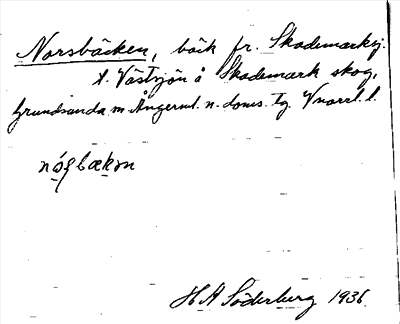 Norsbäcken, bäck fr. Skademarksj.
t. Västsjön å Skademark skog,
Grundsunda sn Ångerml. n. doms. tg. Vnorrl. l.
H A Söderberg 1936